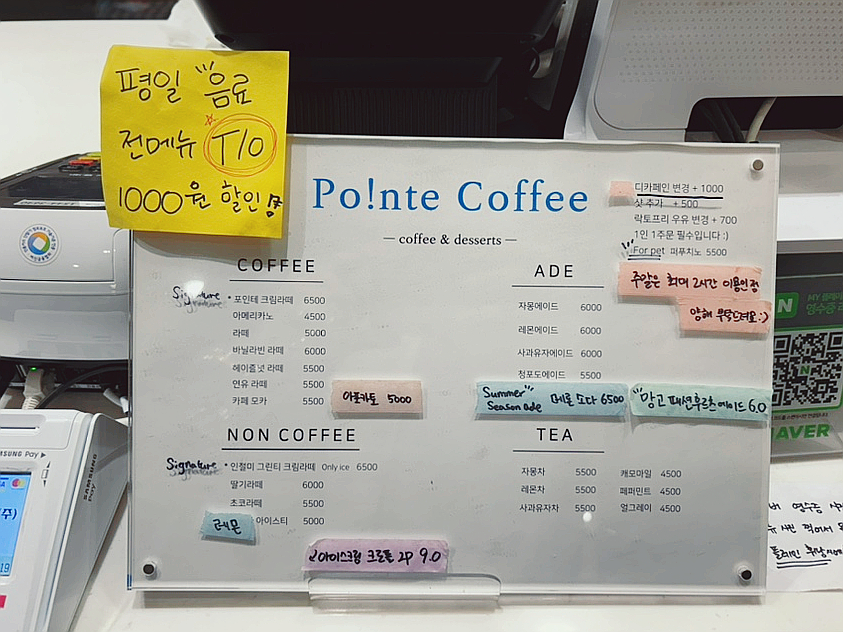 평일 음료
전메뉴 T/O
1000원 할인!
Po!nte Coffee
— coffee & desserts —
디카페인 변경 + 1000
샷 추가 + 500
락토프리 우유 변경 + 700
1인 1주문 필수입니다 :)
For pet 퍼푸치노 5500
주말은 최대 2시간 이용인점
양해 부탁드려요:)
COFFEE
Signature • 포인테 크림라떼 6500
아메리카노 4500
라떼 5000
바닐라빈 라떼 6000
헤이즐넛 라떼 5500
연유 라떼 5500
카페 모카 5500
아포카토 5000
ADE
자몽에이드 6000
레몬에이드 6000
사과유자에이드 6000
청포도에이드 5500
Summer Season ade 메론 소다 6500
망고 패션후르츠에이드 6.0
NON COFFEE
Signature • 인절미 그린티 크림라떼 Only ice 6500
딸기라떼 6000
초코라떼 5500
레몬 아이스티 5000
아이스크림 크로플 2P 9.0
TEA
자몽차 5500
레몬차 5500
사과유자차 5500
캐모마일 4500
페퍼민트 4500
얼그레이 4500
SAMSUNG Pay
SAMSUNG Pay
N
MY 플레이
영수증
NAVER
영수증
먹어서